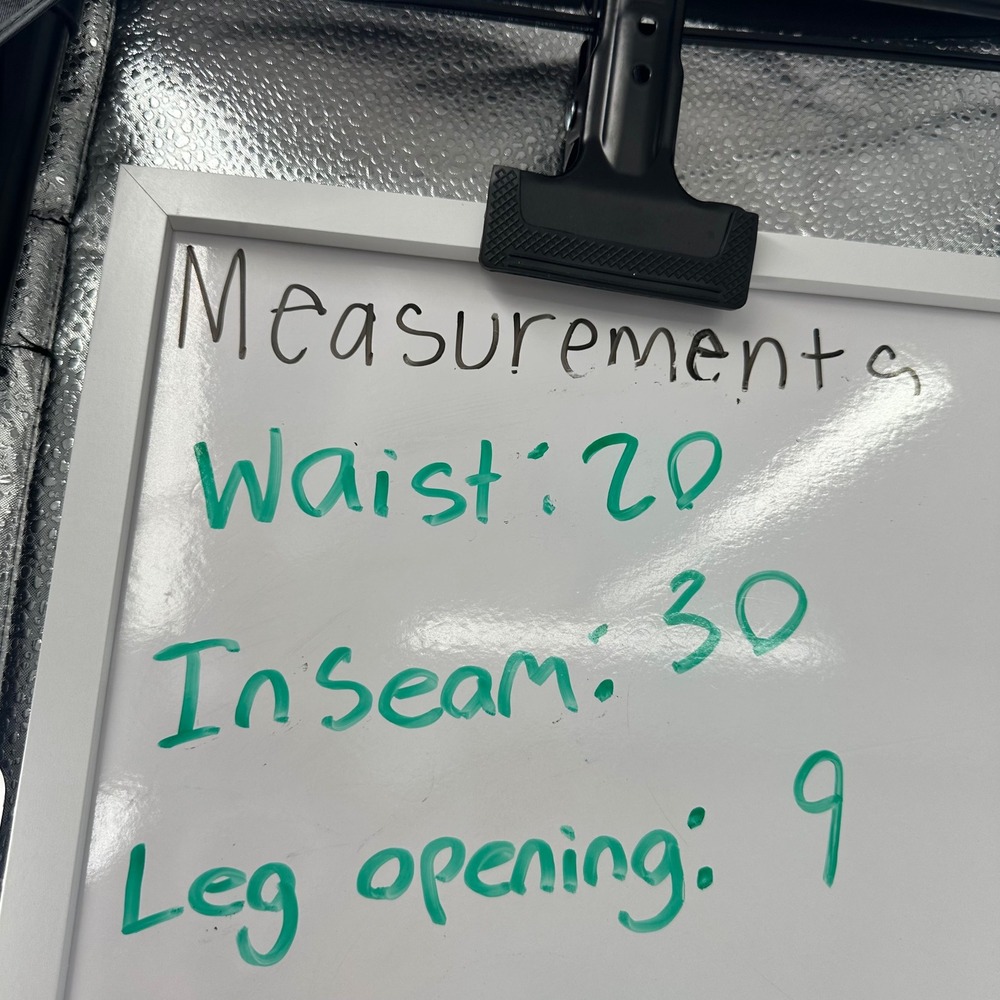 Measurements
Waist: 20
Inseam: 30
Leg opening: 9